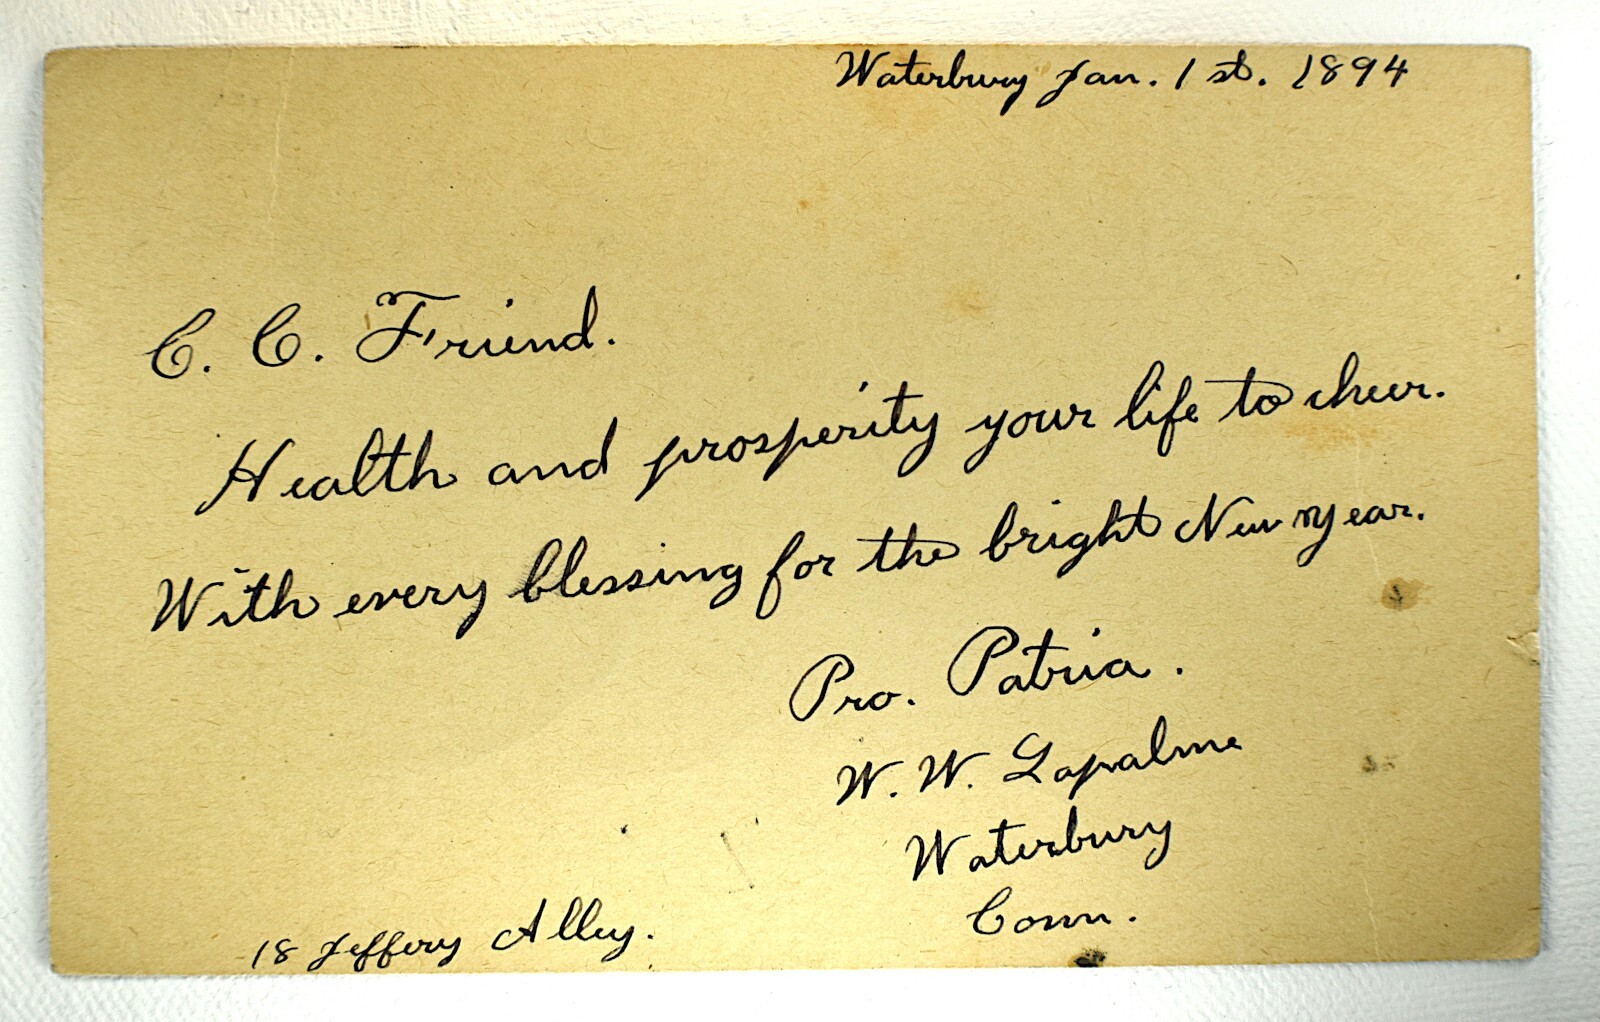 Waterbury Jan. 1 st. 1894
C. C. Friend.
Health and prosperity your life to cheer.
With every blessing for the bright New Year.
Pro. Patria.
W. W. Lapalme
Waterbury
Conn.
18 Jeffery Alley.